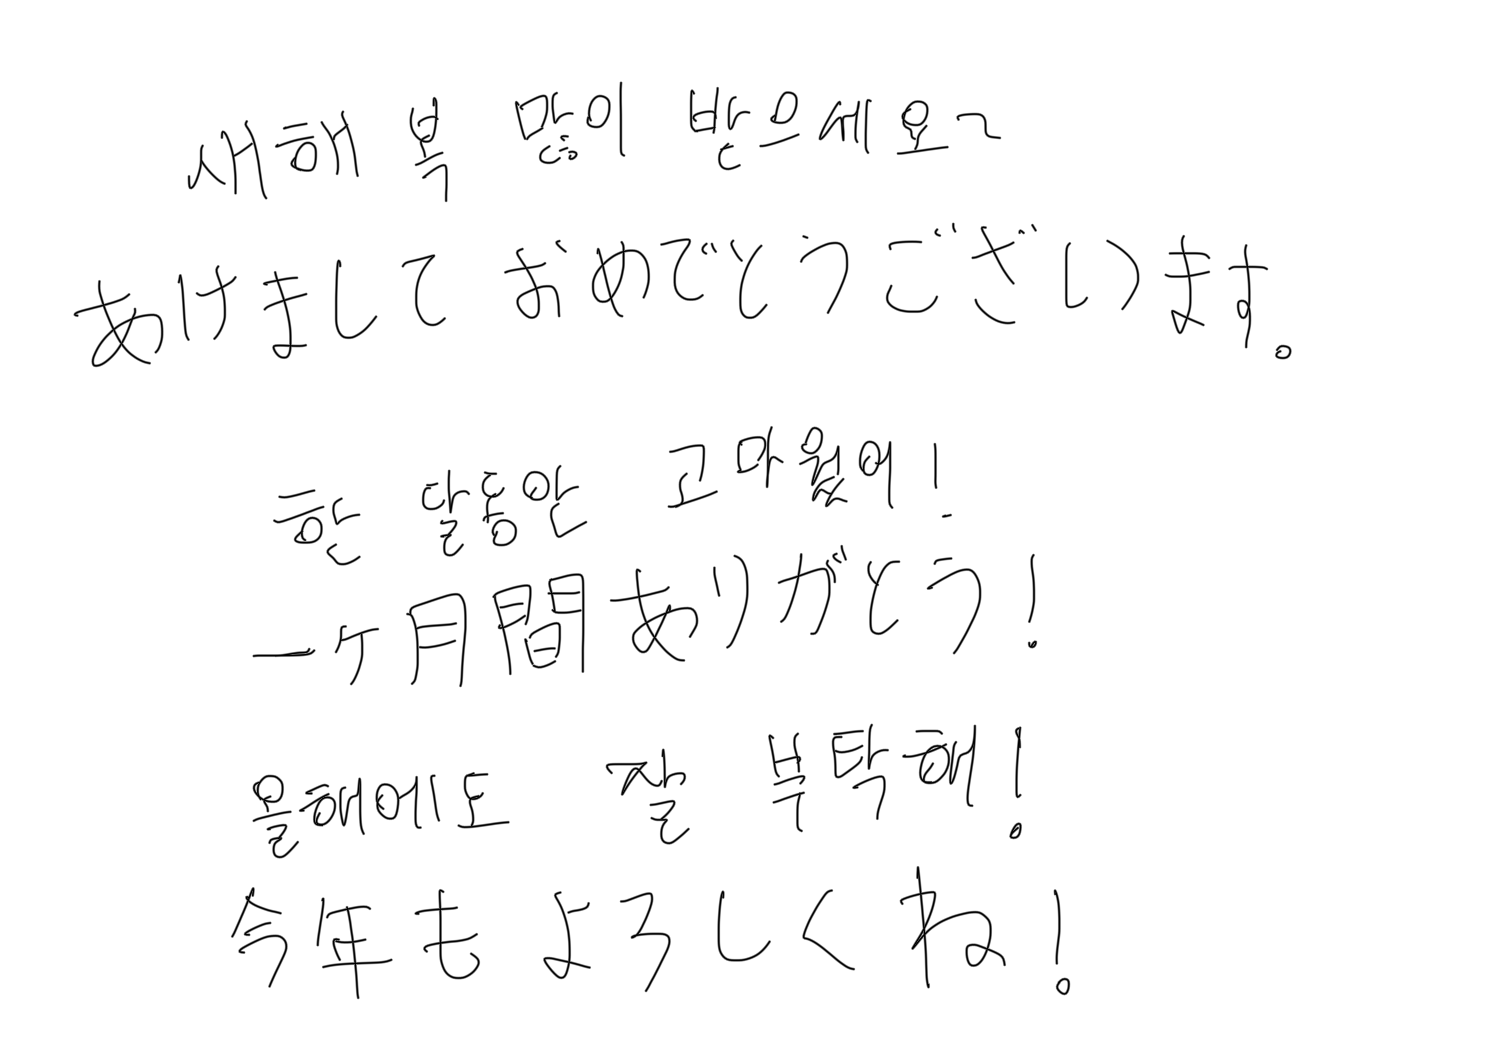 새해 복 많이 받으세요~
あけまして おめでとうございます。
한 달동안 고마웠어!
一ヶ月間ありがとう!
올해에도 잘 부탁해!
今年もよろしくね!